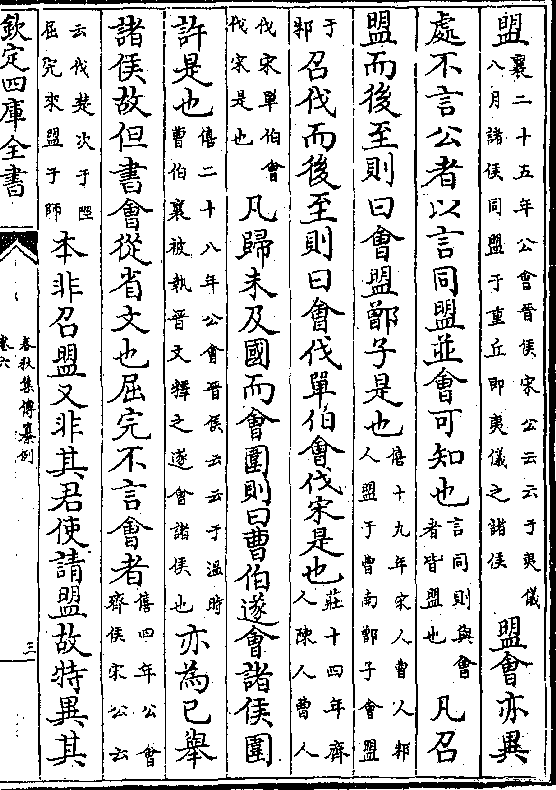 盟襄二十五年公會晉侯宋公云云于夷儀八月諸侯同盟于重丘即夷儀之諸侯盟會亦異
處不言公者以言同盟並會可知也言同則與會者皆盟也凡召
盟而後至則曰會盟鄫子是也僖十九年宋人曹人邾人盟于曹南鄫子會盟
于邾召伐而後至則曰會伐單伯會伐宋是也莊十四年齊人陳人曹人
伐宋單伯會伐宋是也凡歸未及國而會圍則曰曹伯遂會諸侯圍
許是也僖二十八年公會晉侯云云于溫時曹伯襄被執晉文釋之遂會諸侯也亦為已舉
諸侯故但書會從省文也屈完不言會者僖四年公會齊侯宋公云
云伐楚次于陘屈完來盟于師本非召盟又非其君使請盟故特異其
欽定四庫全書
春秋集傳纂例
卷六
三